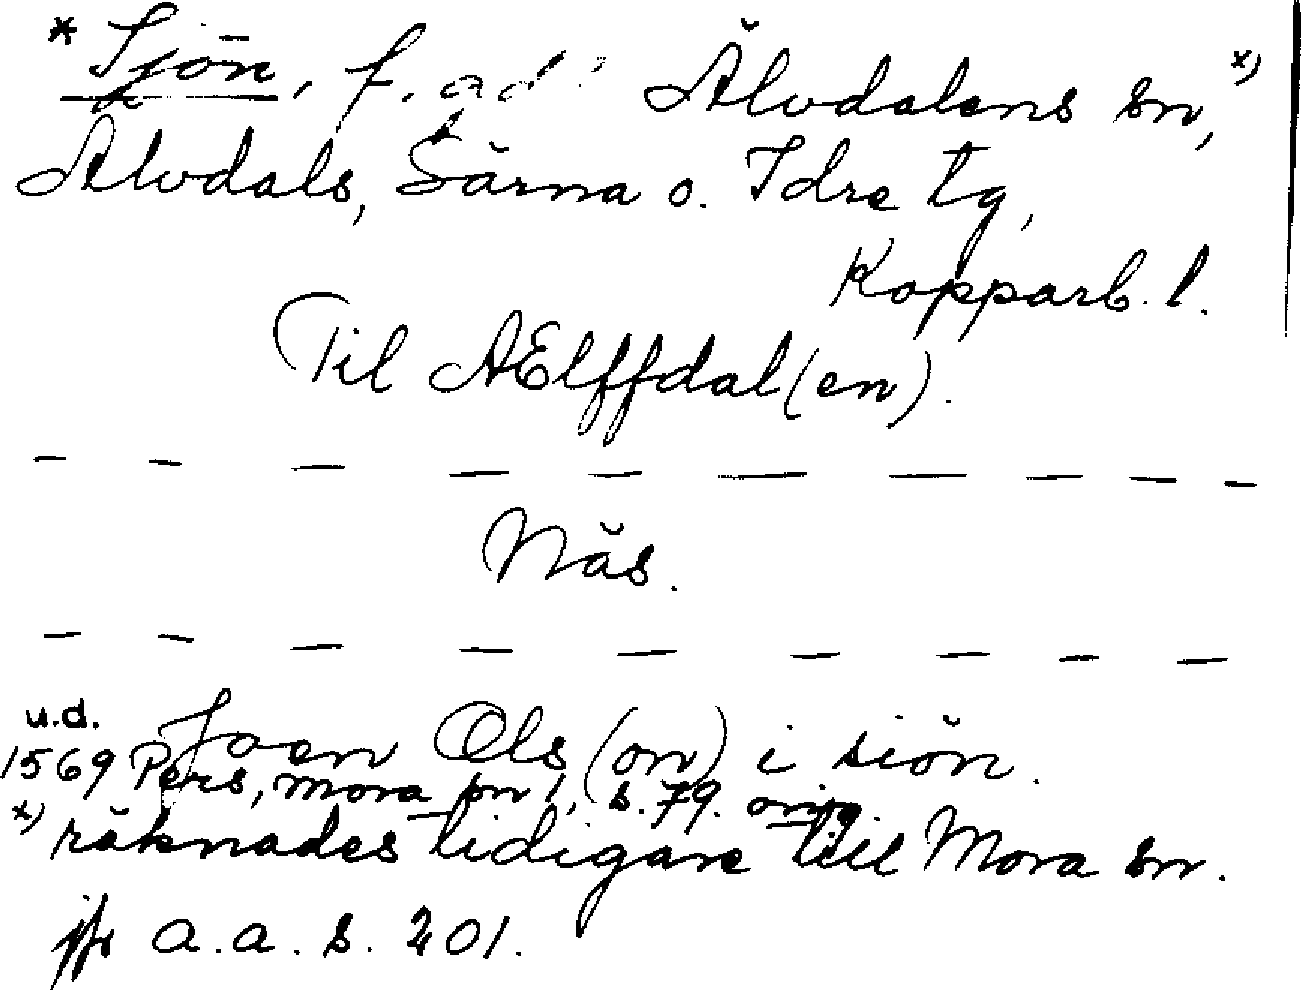 * Sjön, f. gd i Älvdalens sn, x)
Älvdals, Särna o. Idre tg,
Kopparb. l.
Til AElffdal(en).
Näs.
u.d. Joen Ols(on) i siön.
1569 Pers, Mora sn 1, s. 79. orig
x) räknades tidigare till Mora sn.
jfr a.a. s. 201.